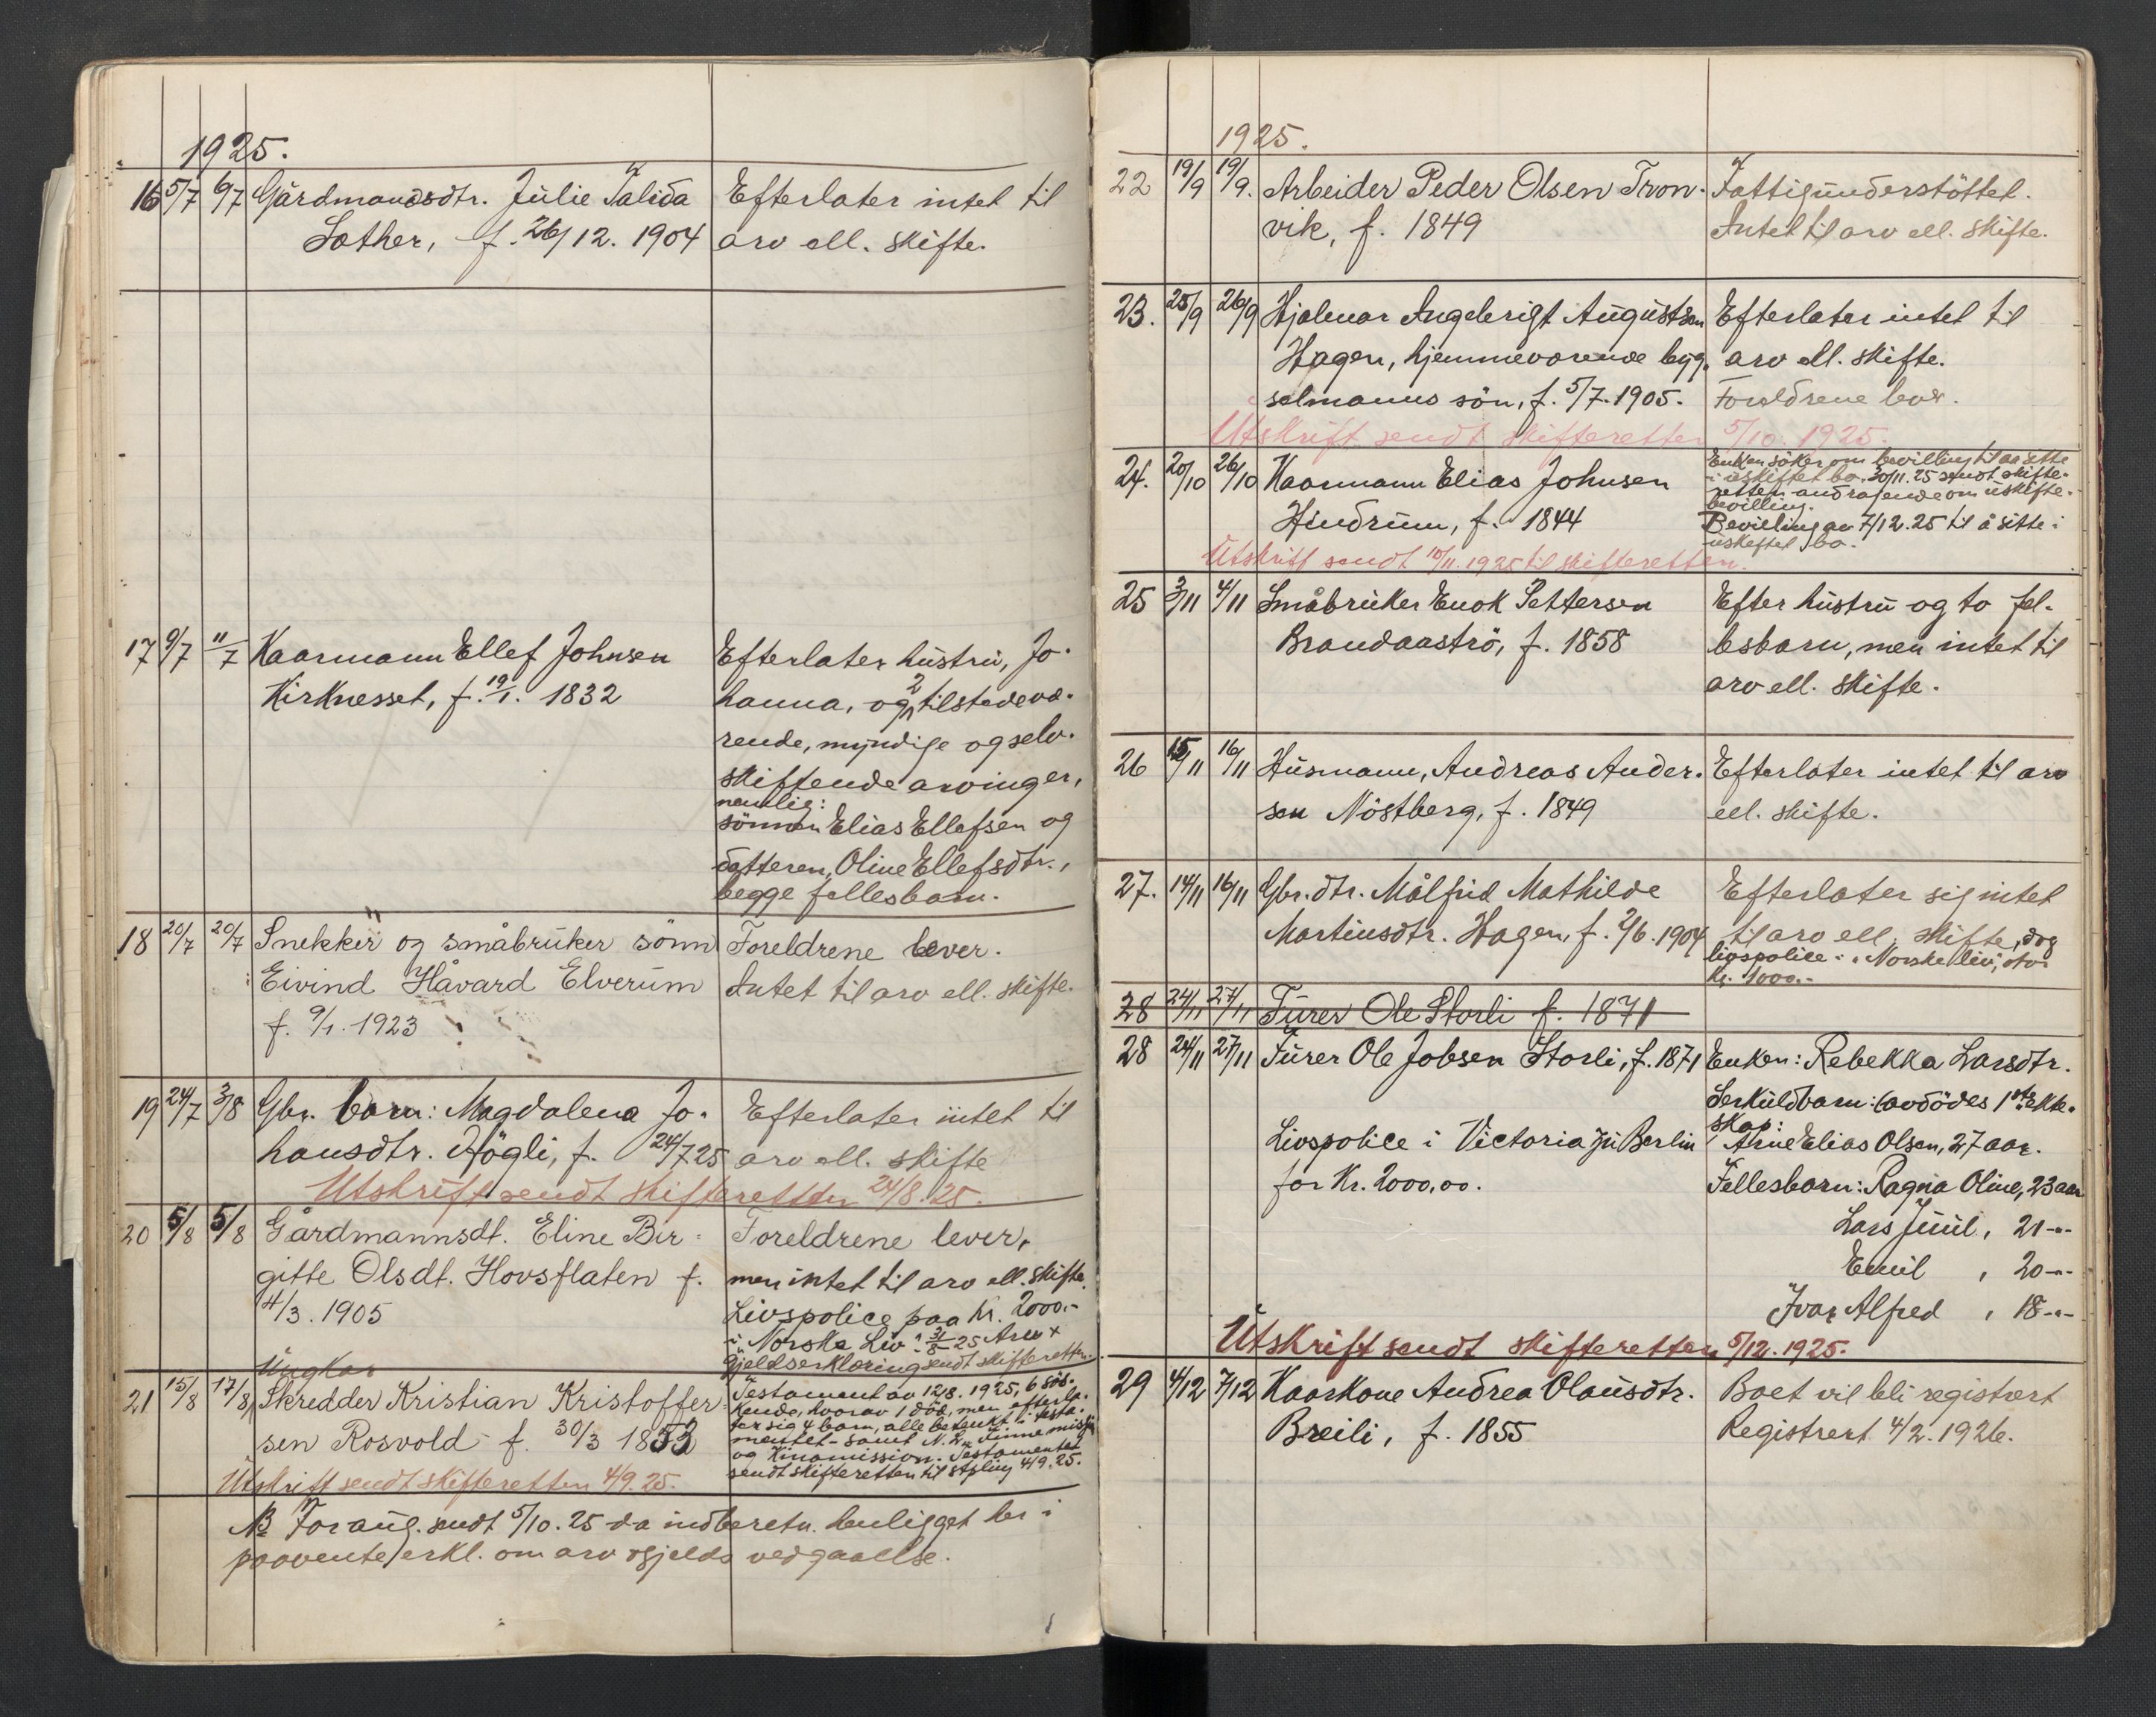 1925.
16 5/7 6/7 Gårdmandsdtr. Julie Talida Efterlater intet til
Sæther, f. 26/12. 1904 arv ell. skifte.
17 9/7 11/7 Kaarmann Ellef Johnsen Efterlater hustru, Jo-
Kirknesset, f. 19/1. 1832 hanna, og 2 tilstedevæ-
rende, myndige og selv-
skiftende arvinger,
nemlig:
sönnen Elias Ellefsen og
datteren, Oline Ellefsdtr.,
begge fellesbarn.
18 20/7 20/7 Snekker og småbruker sönn Foreldrene lever.
Eivind Håvard Elverum Intet til arv ell. skifte.
f. 9/1. 1923
19 24/7 3/8 Gbr. barn: Magdalena Jo- Efterlater intet til
hansdtr. Högli, f. 24/7 25 arv ell. skifte
Utskrift sendt skifteretten 24/8. 25.
20 5/8 5/8 Gårdmannsdt. Eline Bir- Foreldrene lever,
gitte Olsdt. Hovsflaten f. men intet til arv ell. skifte.
4/3. 1905 Livspolice paa kr. 2000.-
i "Norske Liv". 31/8 25 Arv x
gjeldserklæring sendt skifteretten.
Ungkar
21 15/8 17/8 Skredder Kristian Kristoffer- Testament av 12/8. 1925, 6 sös-
sen Rosvold f. 30/3 1853 kende, hvorav 1 död, men efterla-
ter sig 4 barn, alle betenkt i testa-
mentet - samt N. L. Finnemisjon
og Kinamission. Testamentet
sendt skifteretten til stpling 4/9. 25.
Utskrift sendt skifteretten 4/9. 25.
NB For aug. sendt 5/10. 25 da indberetn. henligget her i
paavente erkl. om arv ogjelds vedgaaelse.
1925.
22 19/9 19/9. Arbeider Peder Olsen Tron- Fattigunderstöttet.
vik, f. 1849 Intet til arv ell. skifte.
23. 25/9 26/9 Hjalmar Ingebrigt Augustsen Efterlater intet til
Hagen, hjemmeværende byg- arv ell. skifte.
selmanns sön, f. 5/7. 1905. Foreldrene lever.
Utskrift sendt skifteretten 5/10. 1925.
24. 20/10 26/10 Kaarmann Elias Johnsen Enken söker om bevilling til aa sitte
i uskiftet bo. 30/11. 25 sendt skifte-
retten andragende om uskifte-
bevilling.
Hindrum, f. 1844 Bevilling av 7/12. 25 til å sitte i
uskiftet bo.
Utskrift sendt 10/11. 1925 til skifteretten.
25 3/11 4/11 Småbruker Enok Pettersen Efter hustru og to fel-
Brandaaströ, f. 1858 lesbarn, men intet til
arv ell. skifte.
26 15/11 16/11 Husmann, Andreas Ander- Efterlater intet til arv
sen Nöstberg, f. 1849 ell. skifte.
27. 14/11 16/11 Gbr. dtr. Målfrid Mathilde Efterlater sig intet
Martinsdtr. Hagen, f. 2/6. 1904 til arv ell. skifte, dog
livspolice i "Norske liv", stor
kr. 1000.-
28 24/11 27/11 Furer Ole Storli f. 1871
28 24/11 27/11 Furer Ole Jobsen Storli, f. 1871 Enken: Rebekka Larsdtr.
Serkuldbarn: (avdödes 1ste ekte-
skap:
Livspolice i Victoria zu Berlin Arne Elias Olsen, 27 aar.
for Kr. 2000,00. Fellesbarn: Ragna Oline, 23 aar
Lars Juul, 21 -"-
Emil , 20 -"-
Ivar Alfred , 18 -"-
Utskrift sendt skifteretten 5/12. 1925.
29 4/12 7/12 Kaarkone Andrea Olausdtr. Boet vil bli registrert
Breili, f. 1855 Registrert 4/2. 1926.